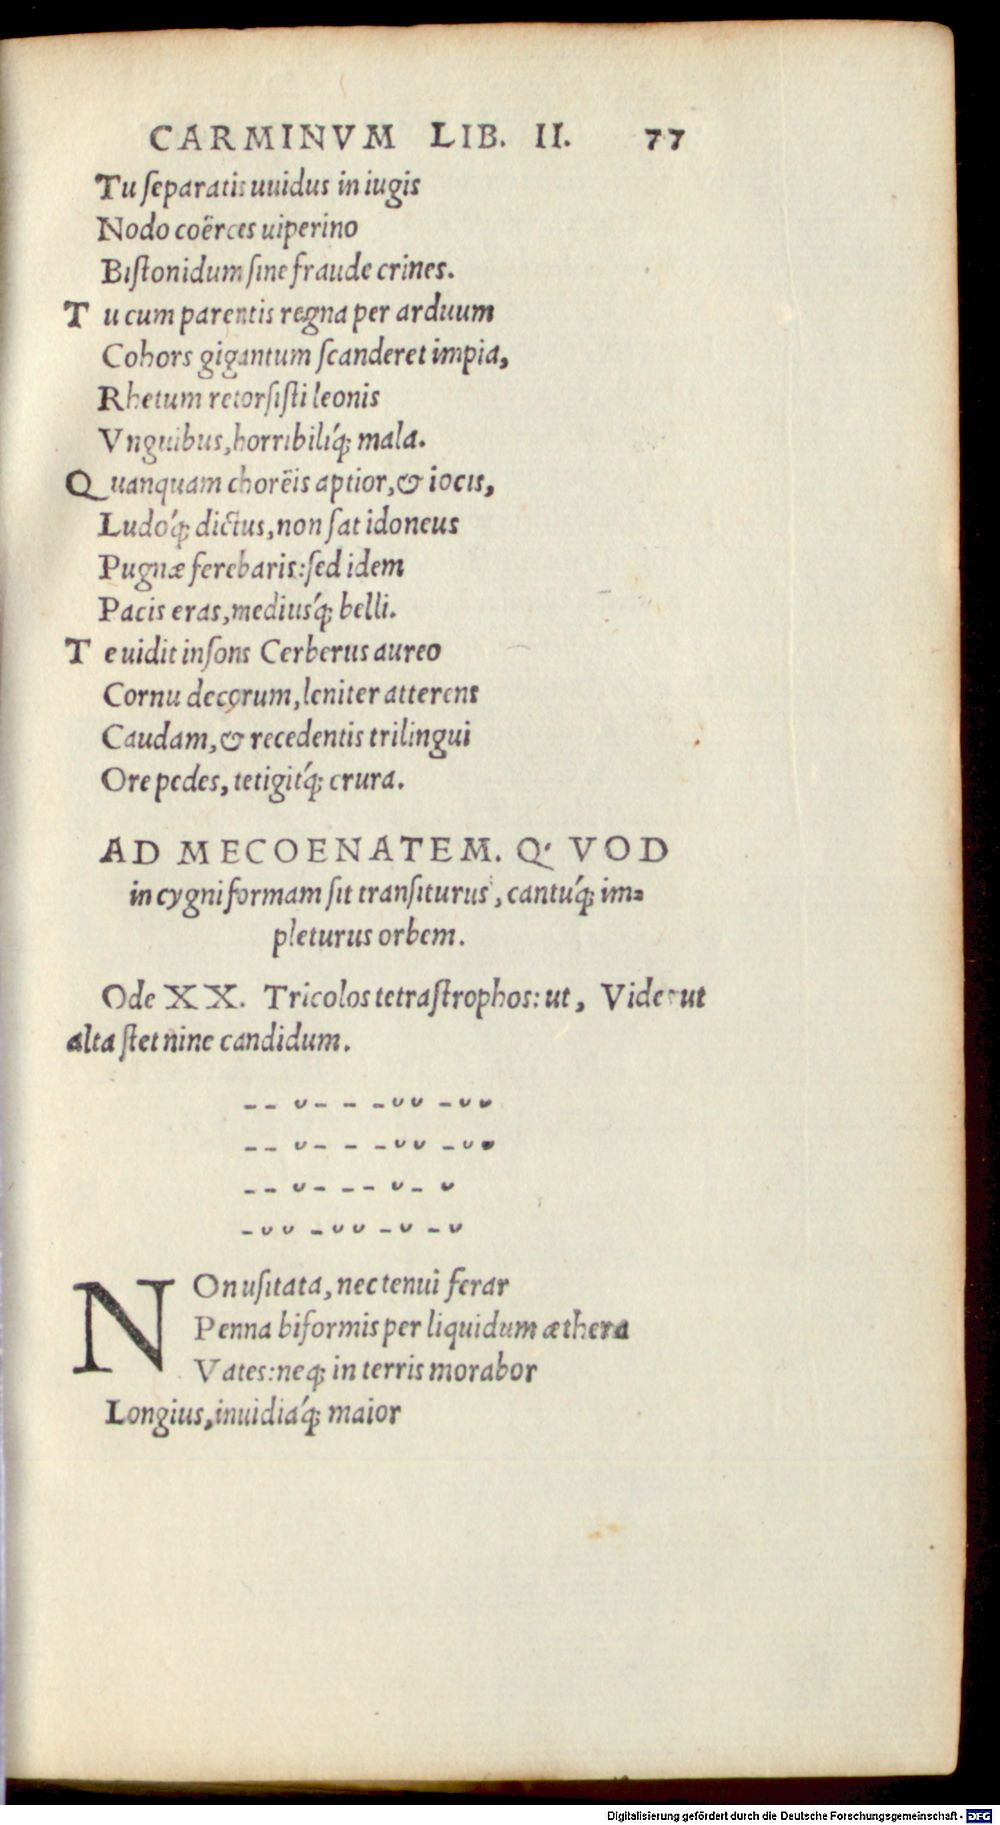 CARMINVM LIB. II. 77
Tu ſeparatis uuidus in iugis
Nodo coërces uiperino
Biſtonidum ſine fraude crines.
T u cum parentis regna per arduum
Cohors gigantum ſcanderet impia,
Rhetum retorſiſti leonis
Vnguibus, horribiliq́; mala.
Q uanquam choreïs aptior, & iocis,
Ludoq́; dictus, non ſat idoneus
Pugnæ ferebaris: ſed idem
Pacis eras, mediusq́; belli.
T e uidit inſons Cerberus aureo
Cornu decorum, leniter atterens
Caudam, & recedentis trilingui
Ore pedes, tetigitq́; crura.
AD MECOENATEM. Q' VOD
in cygni formam ſit tranſiturus, cantuq́; im=
pleturus orbem.
Ode XX. Tricolos tetraſtrophos: ut, Vides ut
alta ſtet niue candidum.
-- ᴗ- - -ᴗᴗ -ᴗᴗ
-- ᴗ- - -ᴗᴗ -ᴗᴗ
-- ᴗ- -- ᴗ- ᴗ
-ᴗᴗ -ᴗᴗ -ᴗ -ᴗ
NOn uſitata, nec tenui ferar
Penna biformis per liquidum æthera
Vates: neq; in terris morabor
Longius, inuidiaq́; maior
Digitalisierung gefördert durch die Deutsche Forschungsgemeinschaft - DFG